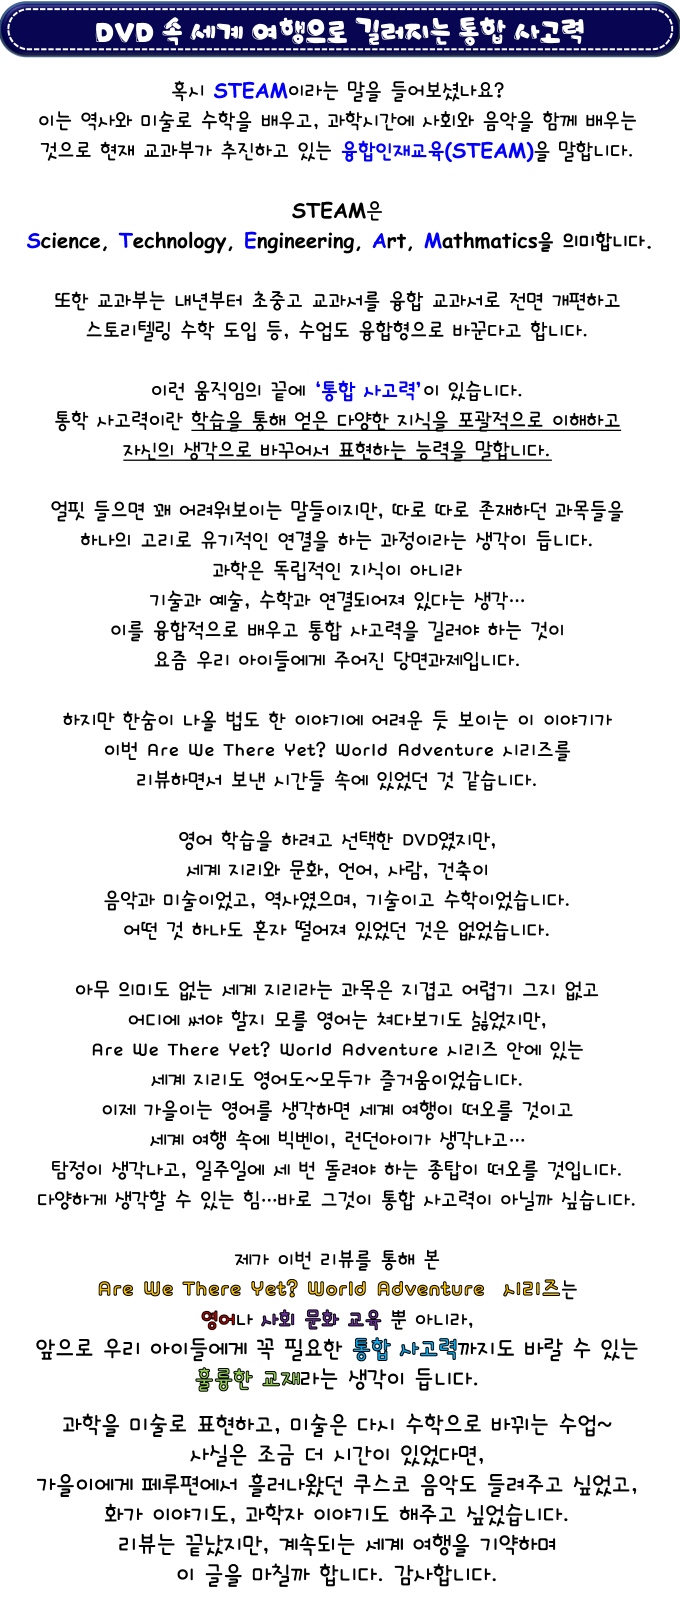 DVD 속 세계 여행으로 길러지는 통합 사고력
혹시 STEAM이라는 말을 들어보셨나요?
이는 역사와 미술로 수학을 배우고, 과학시간에 사회와 음악을 함께 배우는
것으로 현재 교과부가 추진하고 있는 융합인재교육(STEAM)을 말합니다.
STEAM은
Science, Technology, Engineering, Art, Mathmatics을 의미합니다.
또한 교과부는 내년부터 초중고 교과서를 융합 교과서로 전면 개편하고
스토리텔링 수학 도입 등, 수업도 융합형으로 바꾼다고 합니다.
이런 움직임의 끝에 ‘통합 사고력’이 있습니다.
통학 사고력이란 학습을 통해 얻은 다양한 지식을 포괄적으로 이해하고
자신의 생각으로 바꾸어서 표현하는 능력을 말합니다.
얼핏 들으면 꽤 어려워보이는 말들이지만, 따로 따로 존재하던 과목들을
하나의 고리로 유기적인 연결을 하는 과정이라는 생각이 듭니다.
과학은 독립적인 지식이 아니라
기술과 예술, 수학과 연결되어져 있다는 생각…
이를 융합적으로 배우고 통합 사고력을 길러야 하는 것이
요즘 우리 아이들에게 주어진 당면과제입니다.
하지만 한숨이 나올 법도 한 이야기에 어려운 듯 보이는 이 이야기가
이번 Are We There Yet? World Adventure 시리즈를
리뷰하면서 보낸 시간들 속에 있었던 것 같습니다.
영어 학습을 하려고 선택한 DVD였지만,
세계 지리와 문화, 언어, 사람, 건축이
음악과 미술이었고, 역사였으며, 기술이고 수학이었습니다.
어떤 것 하나도 혼자 떨어져 있었던 것은 없었습니다.
아무 의미도 없는 세계 지리라는 과목은 지겹고 어렵기 그지 없고
어디에 써야 할지 모를 영어는 쳐다보기도 싫었지만,
Are We There Yet? World Adventure 시리즈 안에 있는
세계 지리도 영어도~모두가 즐거움이었습니다.
이제 가을이는 영어를 생각하면 세계 여행이 떠오를 것이고
세계 여행 속에 빅벤이, 런던아이가 생각나고…
탐정이 생각나고, 일주일에 세 번 돌려야 하는 종탑이 떠오를 것입니다.
다양하게 생각할 수 있는 힘…바로 그것이 통합 사고력이 아닐까 싶습니다.
제가 이번 리뷰를 통해 본
Are We There Yet? World Adventure 시리즈는
영어나 사회 문화 교육 뿐 아니라,
앞으로 우리 아이들에게 꼭 필요한 통합 사고력까지도 바랄 수 있는
훌륭한 교재라는 생각이 듭니다.
과학을 미술로 표현하고, 미술은 다시 수학으로 바뀌는 수업~
사실은 조금 더 시간이 있었다면,
가을이에게 페루편에서 흘러나왔던 쿠스코 음악도 들려주고 싶었고,
화가 이야기도, 과학자 이야기도 해주고 싶었습니다.
리뷰는 끝났지만, 계속되는 세계 여행을 기약하며
이 글을 마칠까 합니다. 감사합니다.